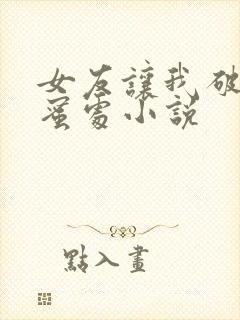 女友讓我破
蜜處小説
點入畫